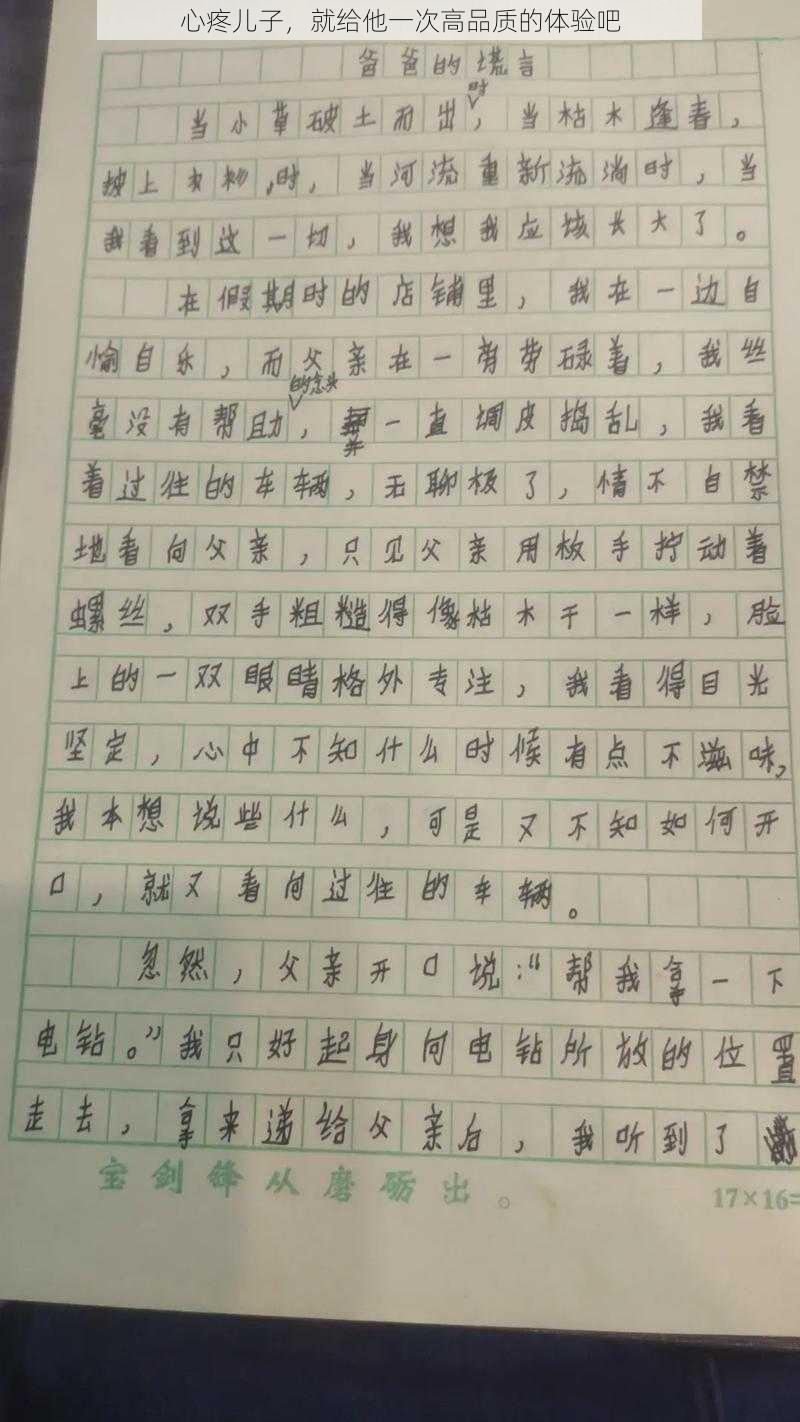 心疼儿子，就给他一次高品质的体验吧
爸爸的谎言
当小草破土而出时，当枯木逢春，
披上衣衫,时，当河流重新流淌时，当
我看到这一切，我想我应该长大了。
在假期时的店铺里，我在一边自
愉自乐，而父亲在一旁劳碌着，我丝
毫没有帮助的念头，并一直调皮捣乱，我看
着过往的车辆，无聊极了，情不自禁
地看向父亲，只见父亲用板手拧动着
螺丝，双手粗糙得像枯木干一样，脸
上的一双眼睛格外专注，我看得目光
坚定，心中不知什么时候有点不滋味，
我本想说些什么，可是又不知如何开
口，就又看向过往的车辆。
忽然，父亲开口说：“帮我拿一下
电钻。”我只好起身向电钻所放的位置
走去，拿来递给父亲后，我听到了
宝剑锋从磨砺出。
17×16=